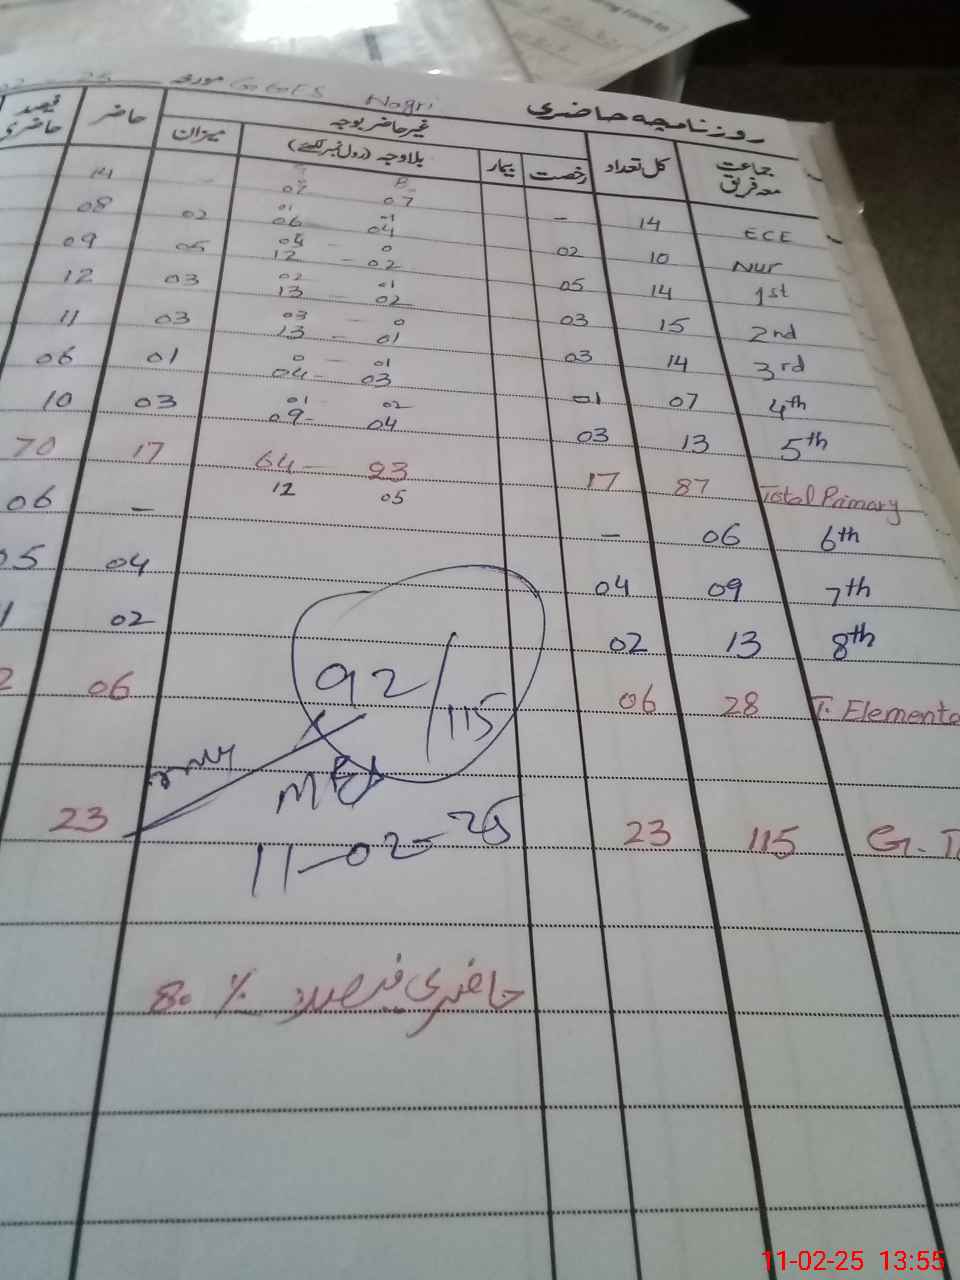 روزنامچہ حاضری GGES Nagri مورخہ
جماعت معہ فریق کل تعداد غیر حاضر بوجہ حاضر فیصد حاضری
رخصت بیمار بلاوجہ (رول نمبر لکھیے) میزان
ECE 14 - 07 07 - 14
Nur 10 02 -1 01 04 06 02 08
1st 14 05 0 04 02 - 12 05 09
2nd 15 03 01 02 02 - 13 03 12
3rd 14 03 0 03 01 - 13 03 11
4th 07 01 01 - 0 03 - 04 01 06
5th 13 03 02 01 04 - 09 03 10
Total Primary 87 17 23 - 64 17 70
05 12
6th 06 - - 06
7th 09 04 04 05
8th 13 02 02
T. Elementa 28 06 06
92/115
G. T 115 23 23
11-02-25
حاضری فیصد % 80
11-02-25 13:55